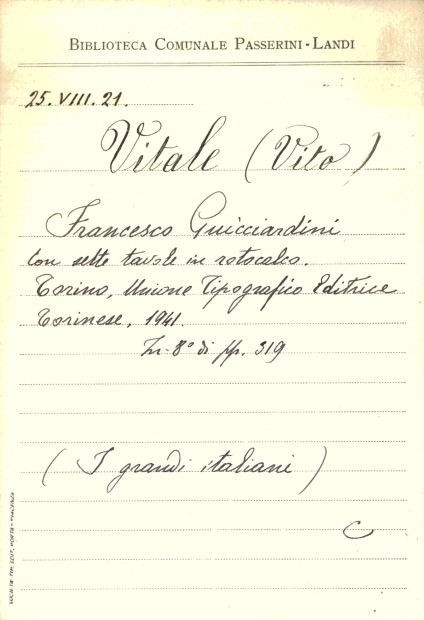 BIBLIOTECA COMUNALE PASSERINI-LANDI
25.VIII.21.
Vitale (Vito)
Francesco Guicciardini
Con sette tavole in rotocalco.
Torino, Unione Tipografico Editrice
Torinese, 1941.
In-8° di pp. 319
(I grandi italiani)
C